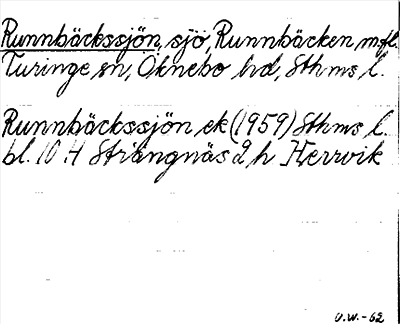 Runnbäckssjön, sjö, Runnbäcken m.fl.
Turinge sn, Öknebo hd, Sthms l.
Runnbäckssjön ek (1959) Sthms l.
bl. 10 H Strängnäs 2 h Herrvik
O.W.-62